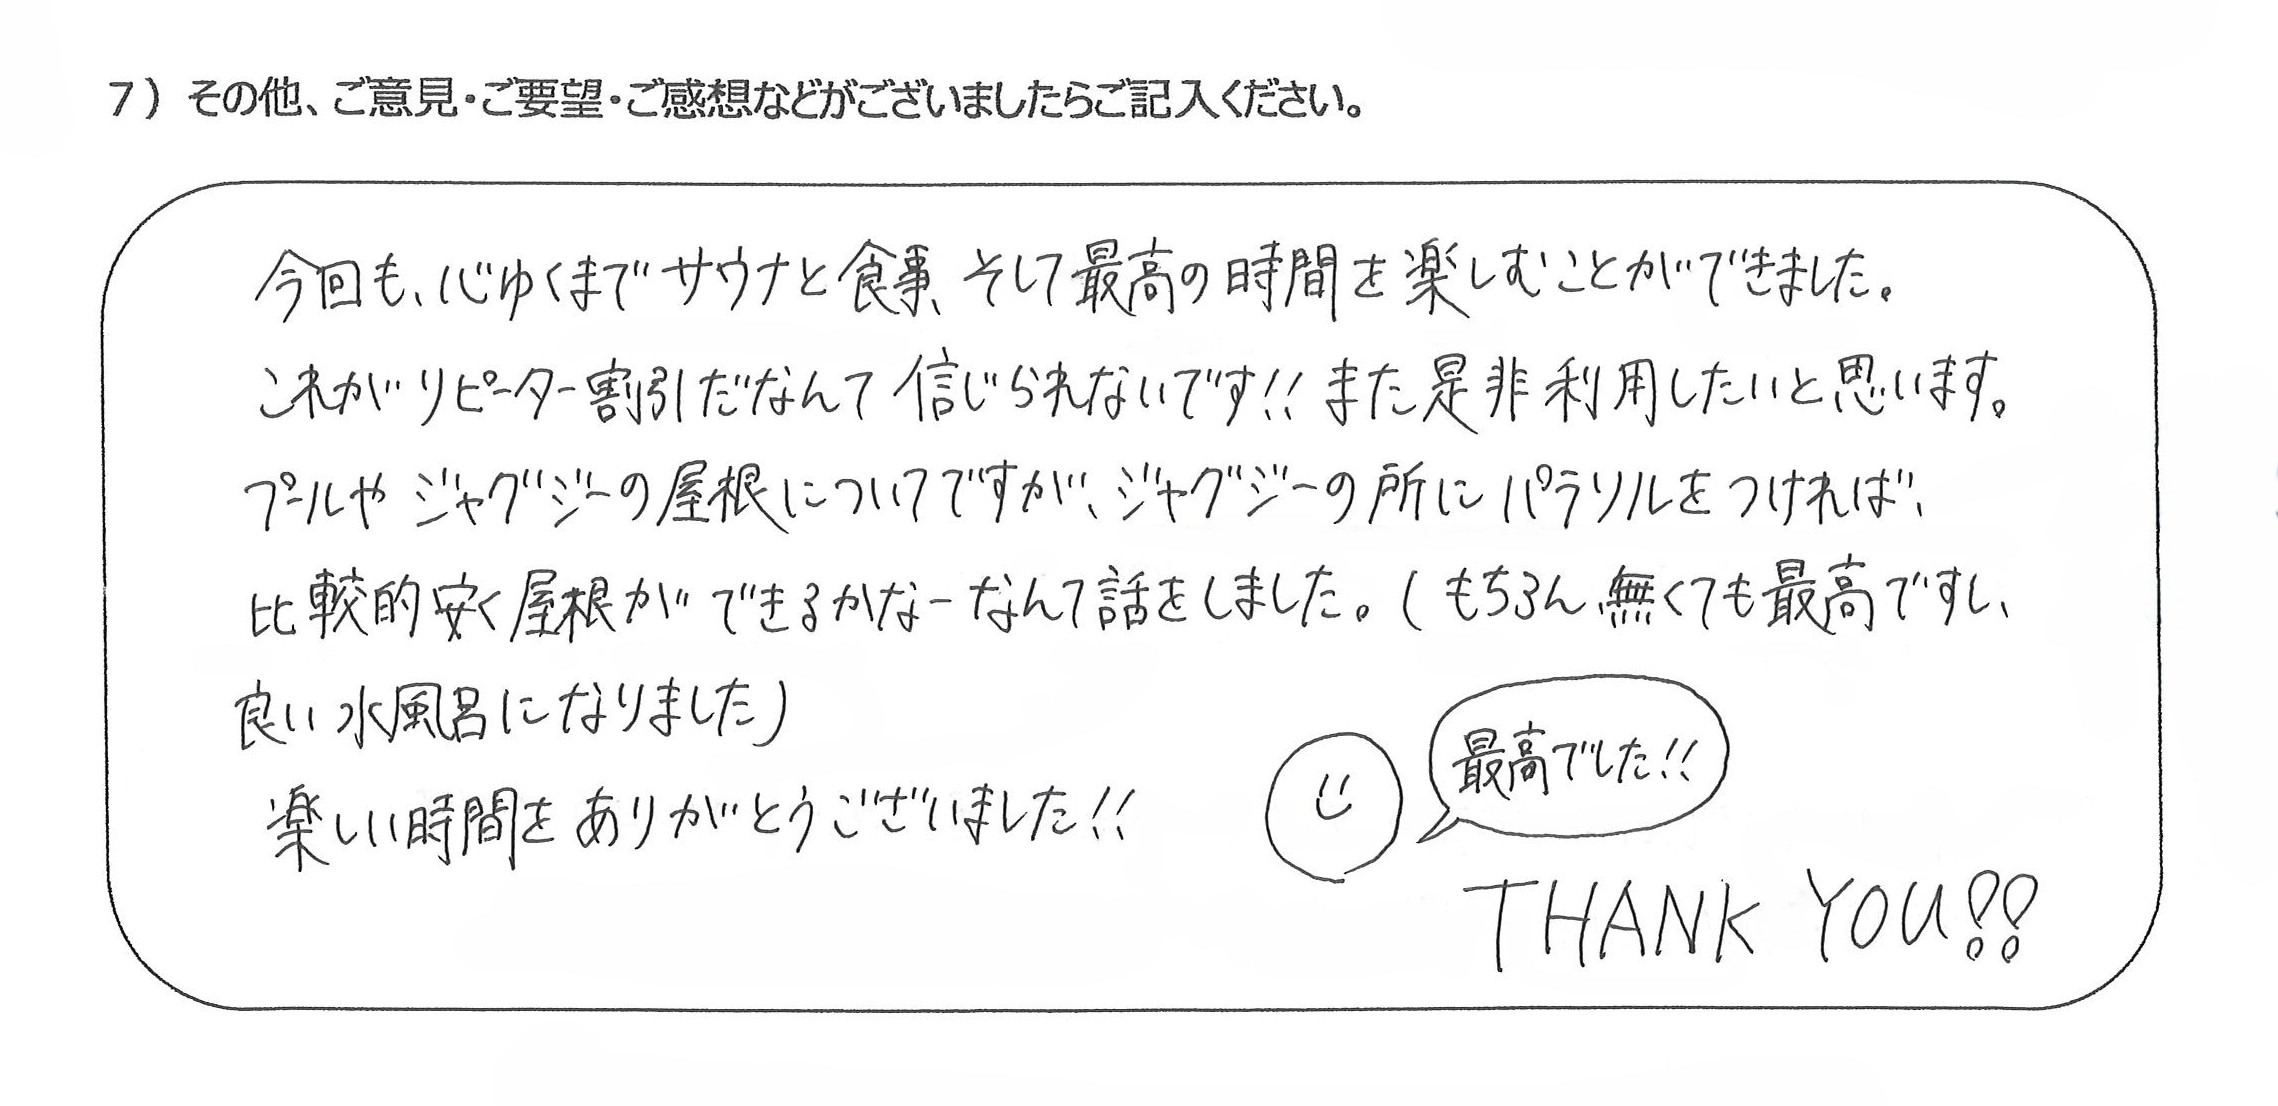 7）その他、ご意見・ご要望・ご感想などがございましたらご記入ください。
今回も、心ゆくまでサウナと食事、そして最高の時間を楽しむことができました。
これがリピーター割引だなんて信じられないです!!また是非利用したいと思います。
プールやジャグジーの屋根についてですが、ジャグジーの所にパラソルをつければ、
比較的安く屋根ができるかなーなんて話をしました。(もちろん、無くても最高ですし、
良い水風呂になりました)
楽しい時間をありがとうございました!!
最高でした!!
THANK YOU!!